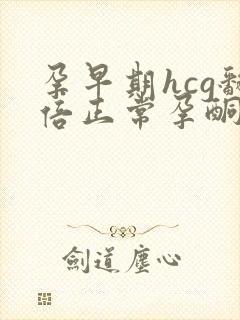 孕早期hcg翻
倍正常孕酮
劍道塵心